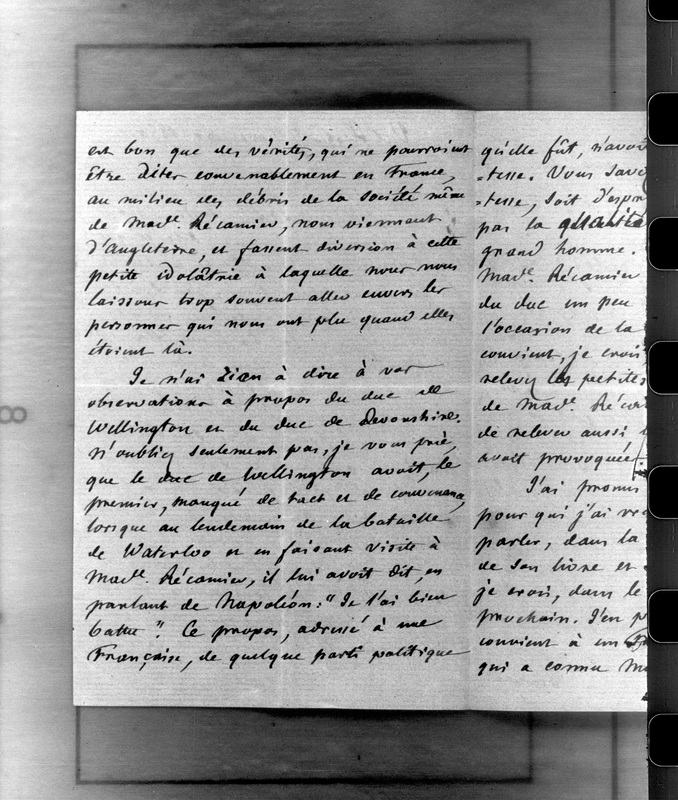 est bon que des vérités, qui ne pourroient
être dites convenablement en France,
au milieu des débris de la société même
de Made. Récamier, nous viennent
d'Angleterre, et fassent diversion à cette
petite idolâtrie à laquelle nous nous
laissons trop souvent aller envers les
personnes qui nous ont plu quand elles
étoient là.
Je n'ai rien à dire à vos
observations à propos du duc de
Wellington et du duc de Devonshire.
N'oubliez seulement pas, je vous prie,
que le duc de Wellington avoit, le
premier, manqué de tact et de convenance,
lorsque au lendemain de la bataille
de Waterloo et en faisant visite à
Made. Récamier, il lui avoit dit, en
parlant de Napoléon: "Je l'ai bien
battu". Ce propos, adressé à une
Française, de quelque parti politique
qu'elle fût, n'avoit
-tesse. Vous save
-tesse, soit d'espr
par la quantité
grand homme.
Made. Récamier
du duc un peu
l'occasion de la
convient, je crois
relevez les petites
de Made. Réca
de relever aussi
avoit provoquée
J'ai promis
pour qui j'ai
parler, dans la
de son livre et
je crois, dans le
prochain. J'en
convient à un
qui a connu